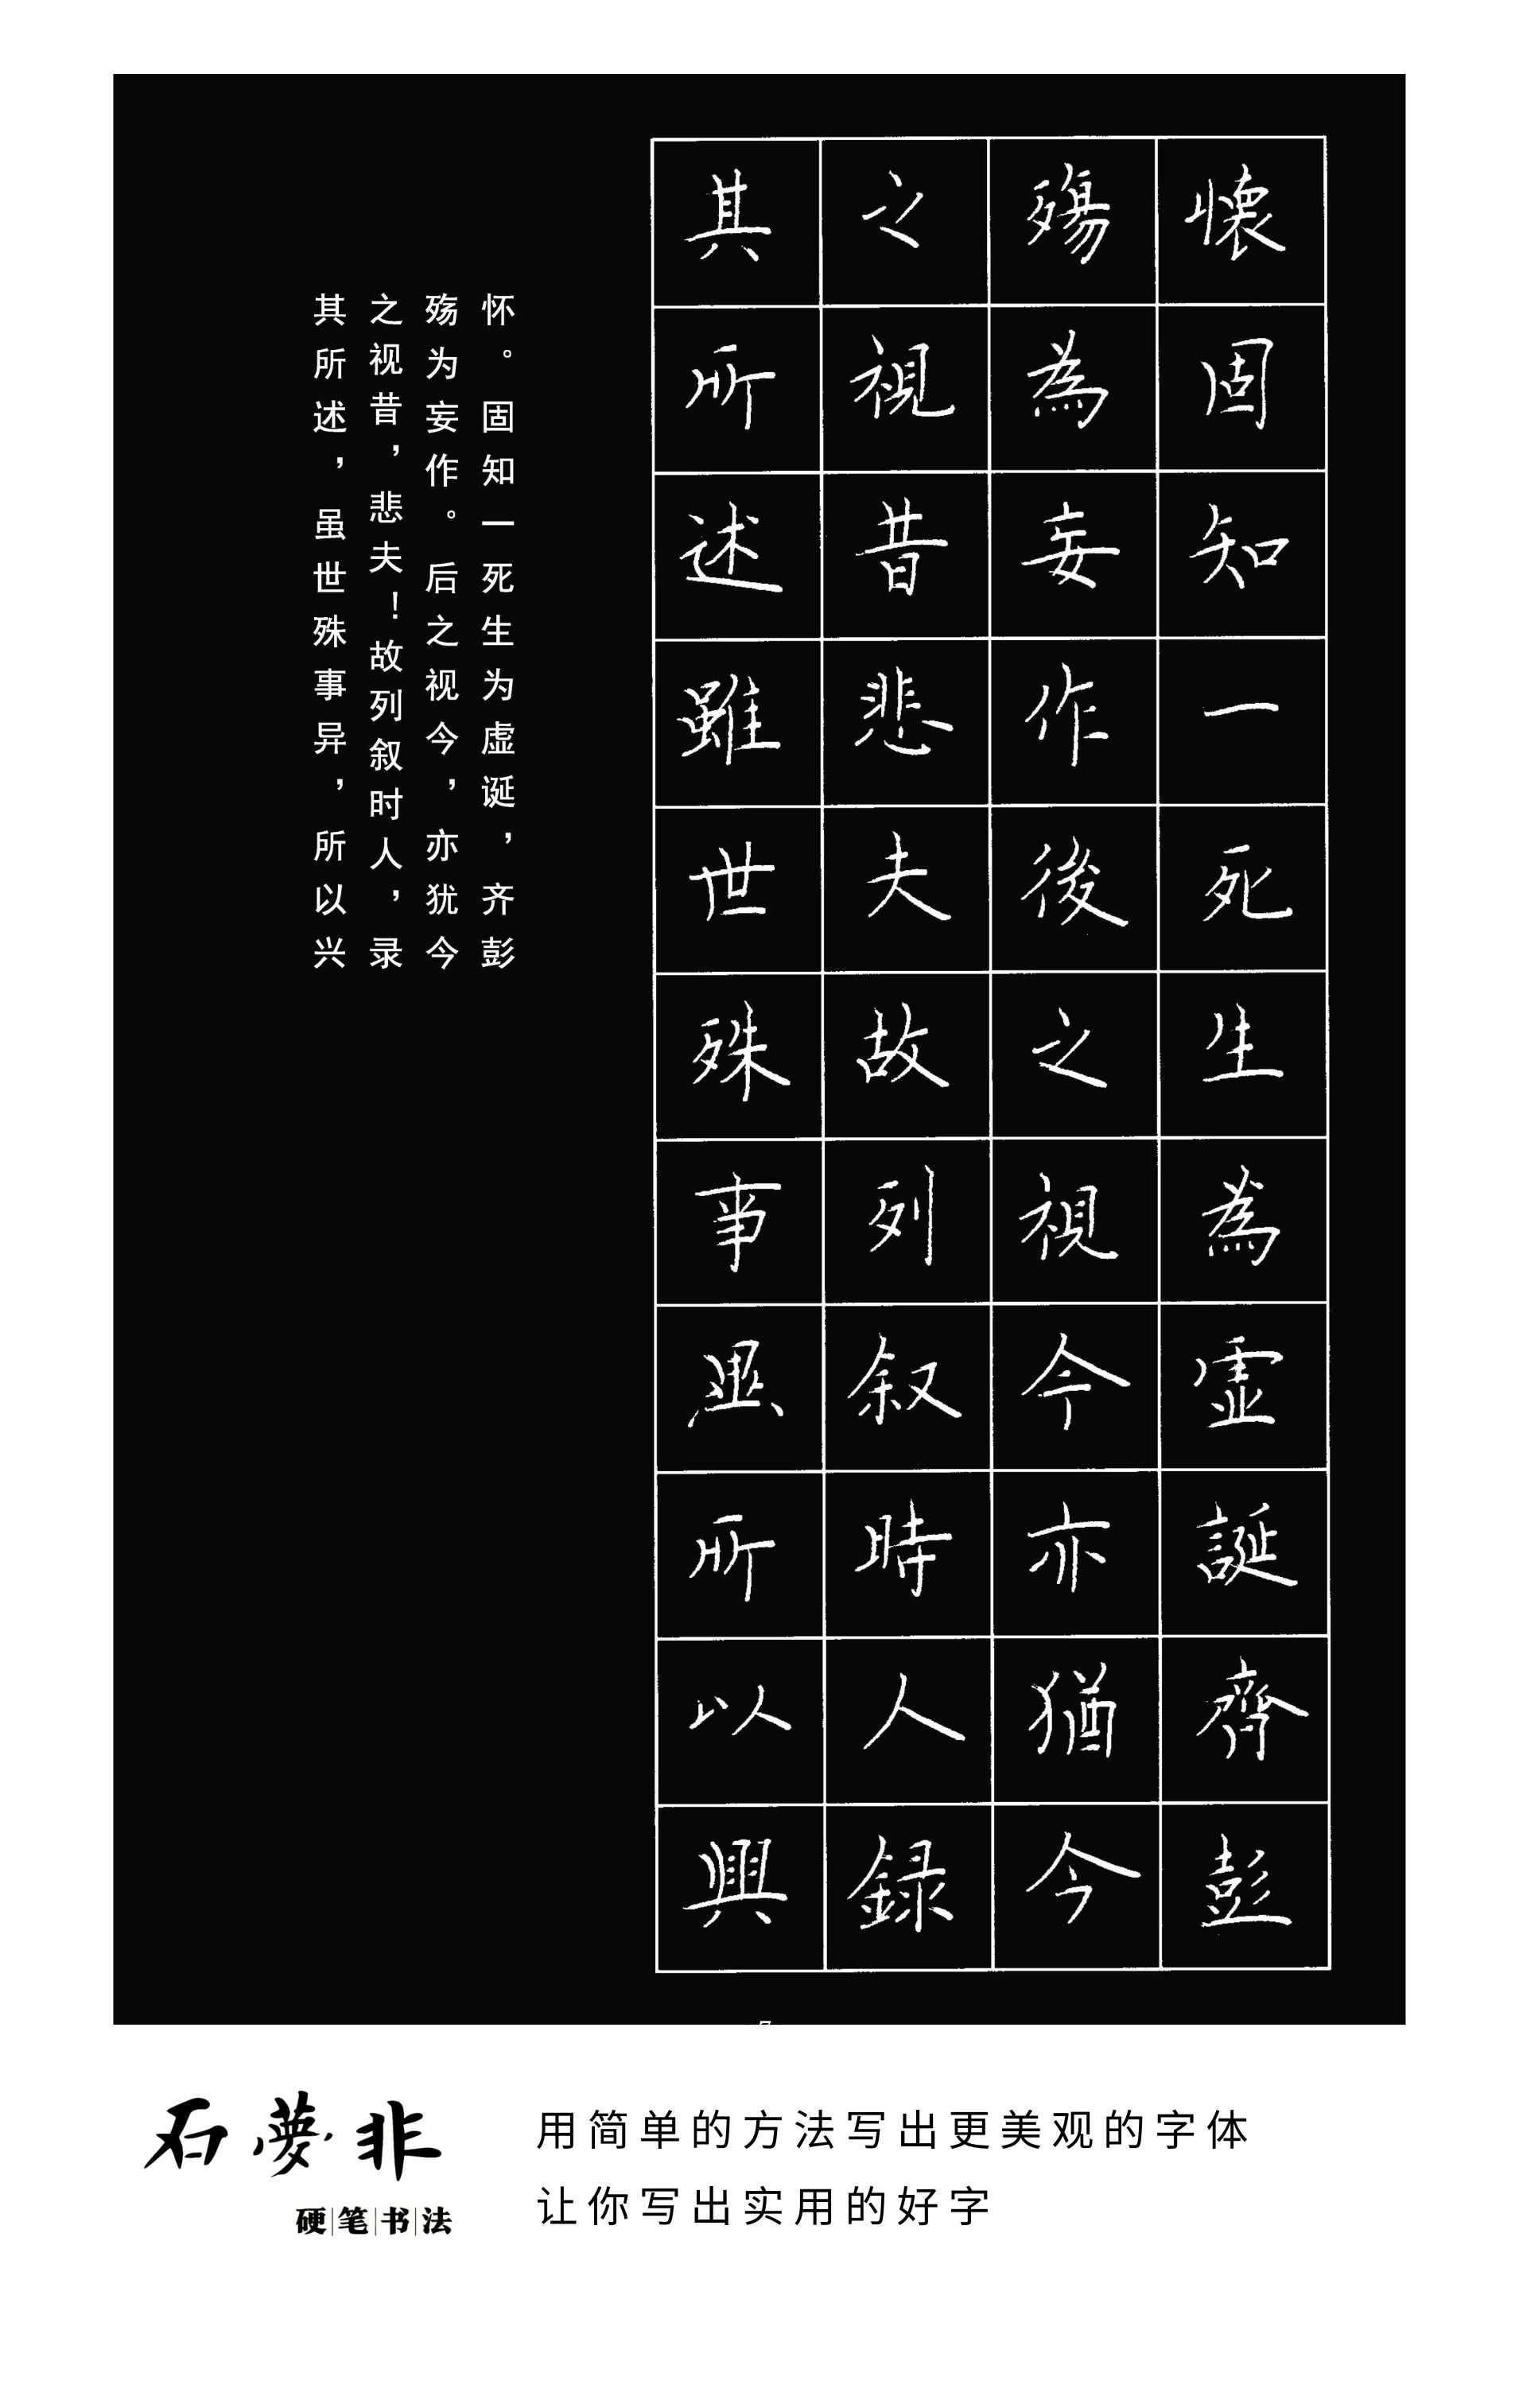 懷固知一死生為虛誕齊彭
殤為妄作後之視今亦猶今
之視昔悲夫故列叙時人録
其所述雖世殊事異所以興
怀。固知一死生为虚诞，齐彭
殇为妄作。后之视今，亦犹今
之视昔，悲夫！故列叙时人，录
其所述，虽世殊事异，所以兴
石夢非
硬笔书法
用简单的方法写出更美观的字体
让你写出实用的好字